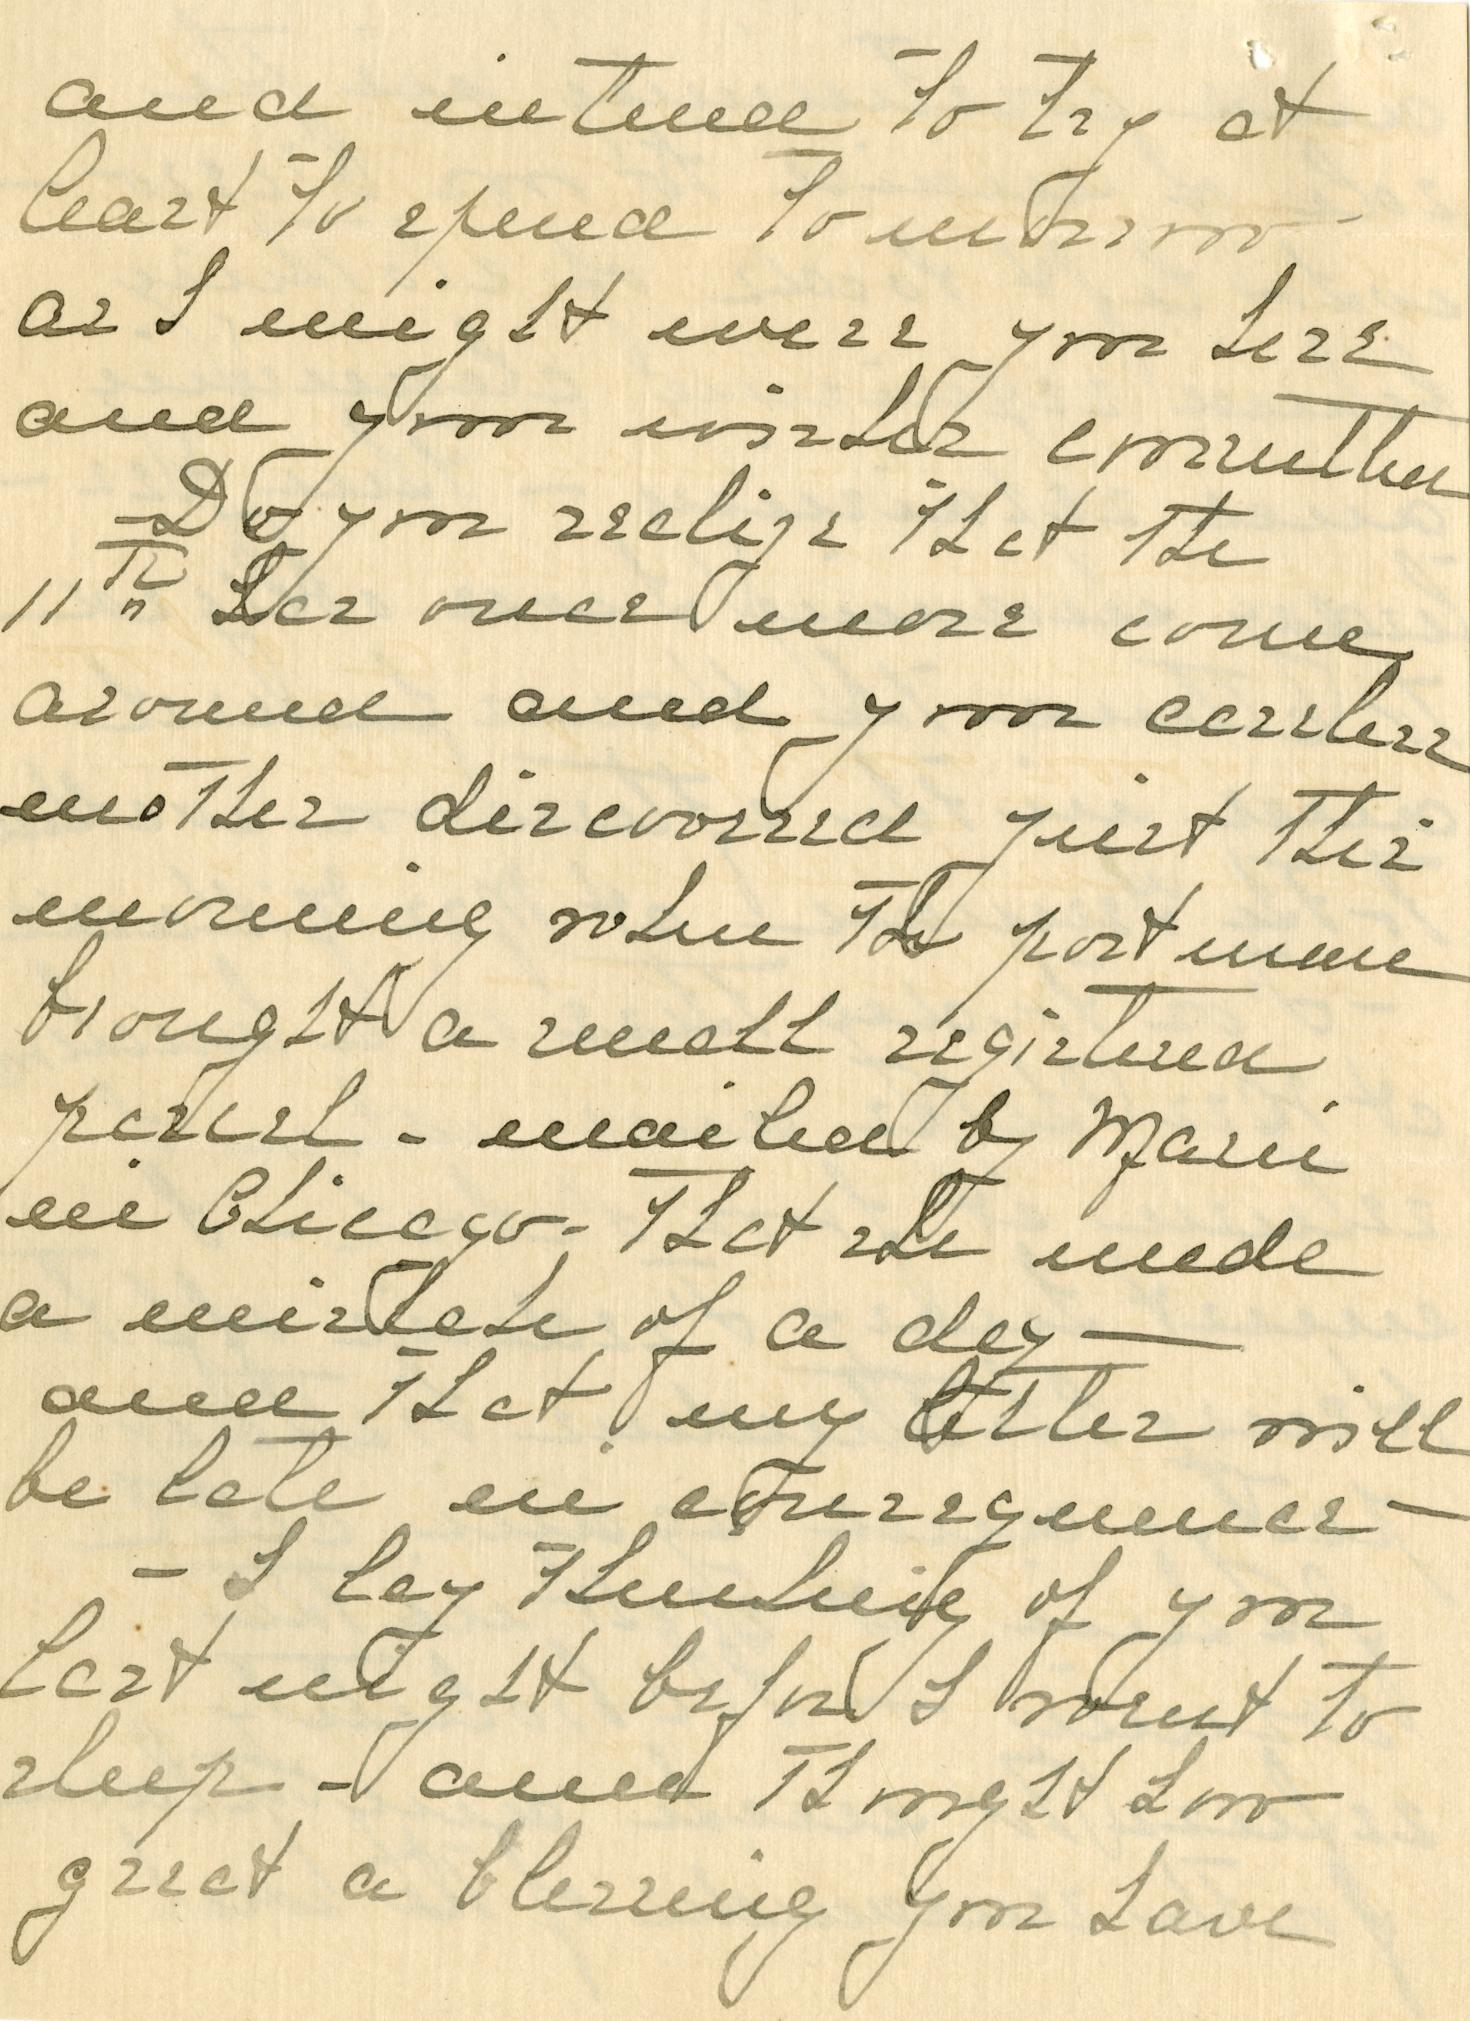 and intend to try at
least to spend tomorrow -
as I might were you here
and your wishes consulted
Do you realize that the
11th has once more come
around and your careless
mother discovered just this
morning when the postman
brought a small registered
parcel - mailed by Marie
in Chicago - that she made
a mistake of a day —
and that my letter will
be late in consequence —
- I lay thinking of you
last night before I went to
sleep - and thought how
great a blessing you have